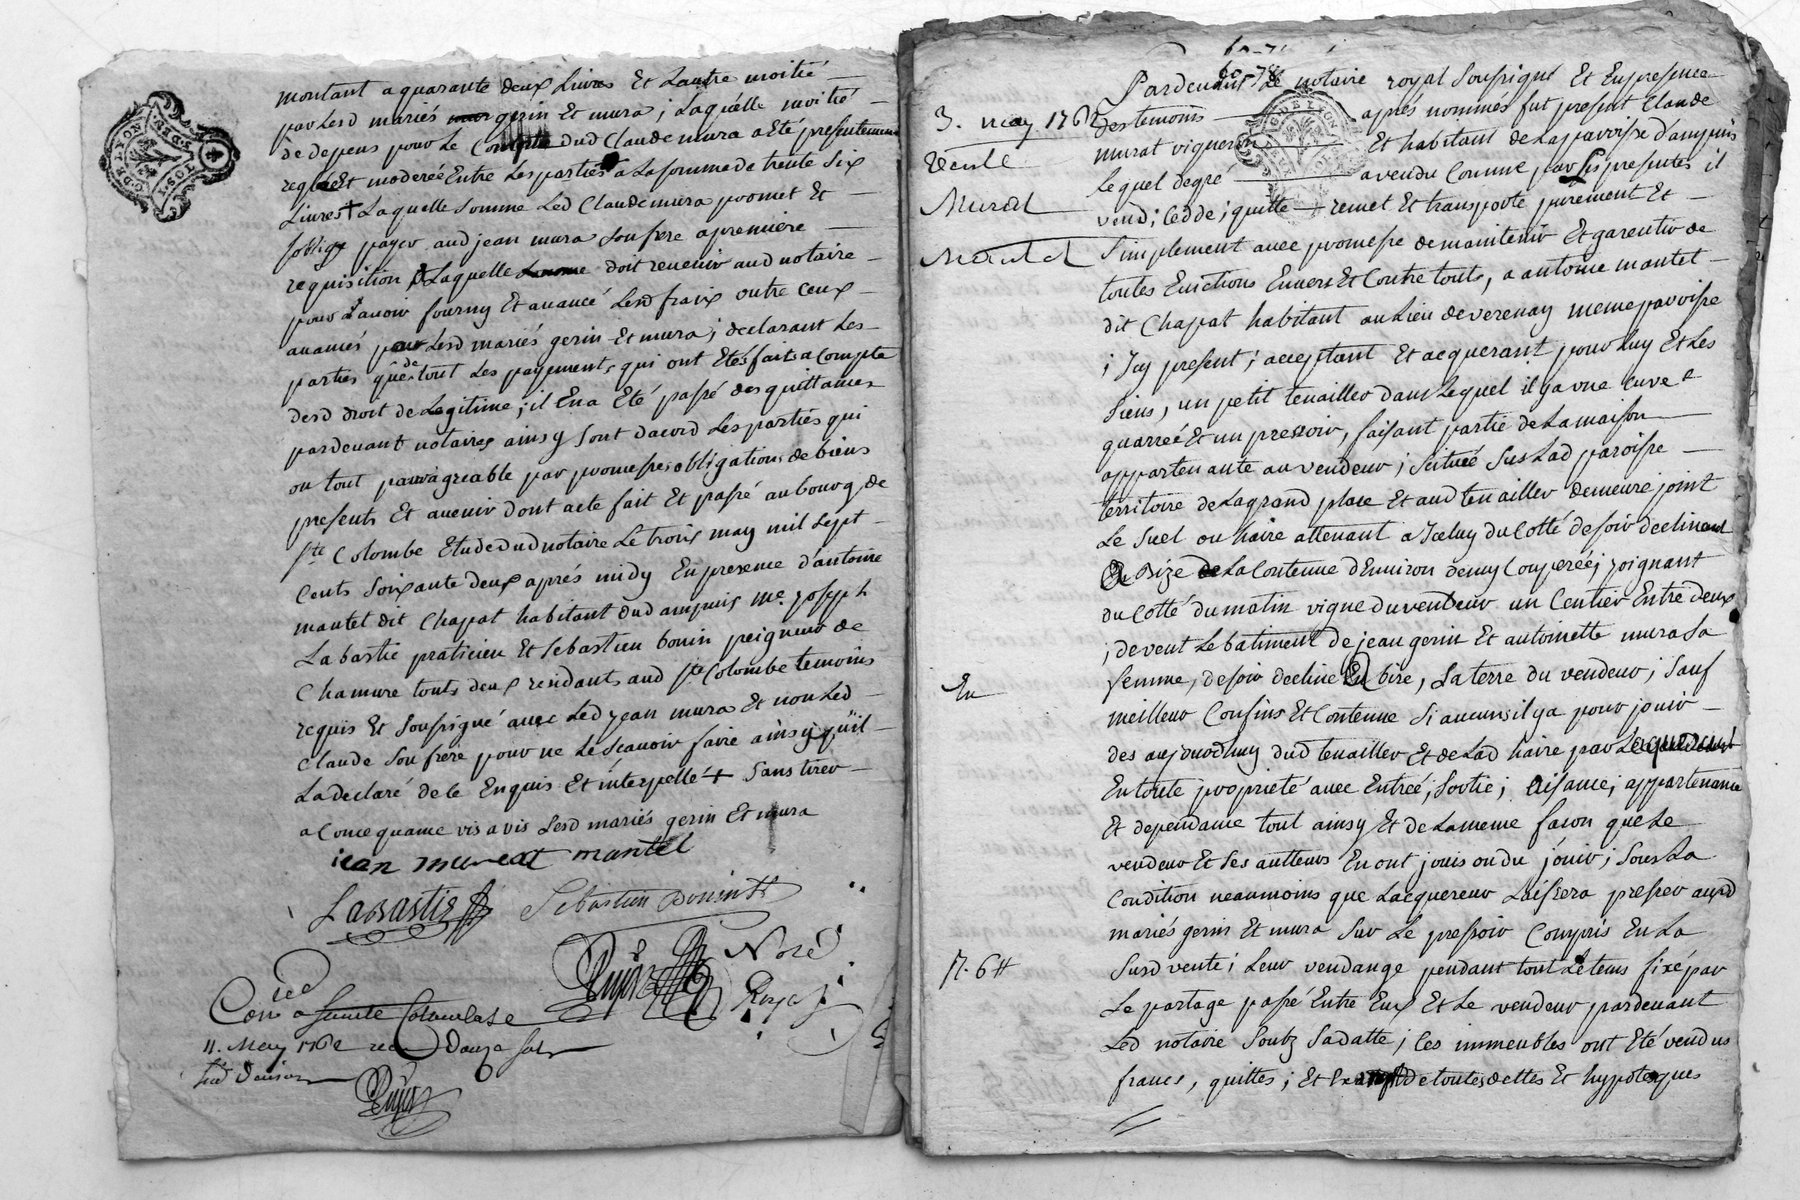 montant a quarante deux Livres Et Lautre moitié
par Lesd mariés gerin Et mura ; Laquelle moitié
de depens pour Le Compte dud Claude mura a Eté presentement
reglée Et moderée Entre Les parties a La somme de trente six
Livres + Laquelle somme Led Claude mura promet Et
soblige payer aud jean mura son frere a premiere
requisition Laquelle doit revenir aud notaire
pour avoir fourny Et avancé Lesd fraix outre ceux
avancés par Lesd mariés gerin et mura ; declarant Les
parties que de tout Les payements qui ont Etés faits a compte
desd droit de Legitime ; il En a Eté passé des quittances
pardevant notaires ainsy sont dacord Les parties qui
ont tout pour agreable par promesses obligations de biens
presents Et avenir dont acte fait Et passé au bourg de
ste Colombe Etude dud notaire Le trois may mil sept
Cents soixante deux aprés midy En presence d'antoine
mantel dit Chapat habitant dud ampuis me. joseph
Labastie praticien Et Sebastien bonin peigneur de
Chamure touts deux residants aud ste Colombe temoins
requis Et soussigné avec Led jean mura Et non Led
Claude son frere pour ne Le scavoir faire ainsy quil
La declaré de ce Enquis Et interpellé + sans tirer
a Consequance vis a vis Lesd mariés gerin Et mura
iean murat mantel
LaBastie Sebastien Bonin
Noré
Royal
Con a Sainte Colombe le
11. May 1762 rec Douze sols
60-78
Pardevant Le notaire royal soussigné Et En presence
3. may 1762 des temoins apres nommés fut present Claude
vente murat vigneron Et habitant de La paroisse d'ampuis
Lequel de gré a vendu Comme par Les presentes il
Murat vend ; cedde ; quitte remet Et transporte purement Et
Mantel simplement avec promesse de maintenir Et garentir de
toutes Evictions Envers Et Contre touts, a antoine mantel
dit Chapat habitant au Lieu de verenay meme paroisse
; Icy present ; acceptant Et acquerant pour Luy Et Les
siens, un petit tenailler dans Lequel il ya une cuve
quarreé Et un pressoir, faisant partie de La maison
appartenante au vendeur ; scituée sus Lad paroisse
territoire de La grand place Et aud tenailler demeure joint
Le suel ou haire attenant a Iceluy du Cotté de soir declinant
En bize de La Contenue d'Environ demy Couperée ; joignant
du Cotté du matin vigne du vendeur un Centier Entre deux
; de vent Le batiment de jean gerin Et antoinette mura sa
femme, de soir decline En bize, La terre du vendeur ; sauf
En
meilleur Confins Et Contenue si aucuns il ya pour jouir
des aujourdhuy dud tenailler Et de Lad haire par Lacquereur
En toute proprieté avec Entrée ; sortie ; aisance ; appartenance
Et dependance tout ainsy Et de La meme facon que Le
vendeur Et ses autteurs En ont jouis ou du jouir ; sous La
Condition neanmoins que Lacquereur Laissera presser auxd
mariés gerin Et mura sur Le pressoir Compris En La
susd vente ; Leur vendange pendant tout Le tems fixé par
Le partage passé Entre Eux Et Le vendeur pardevant
Led notaire soubz sa datte ; Ces immeubles ont Eté vendus
francs, quittes ; et de toutes dettes Et hypoteques